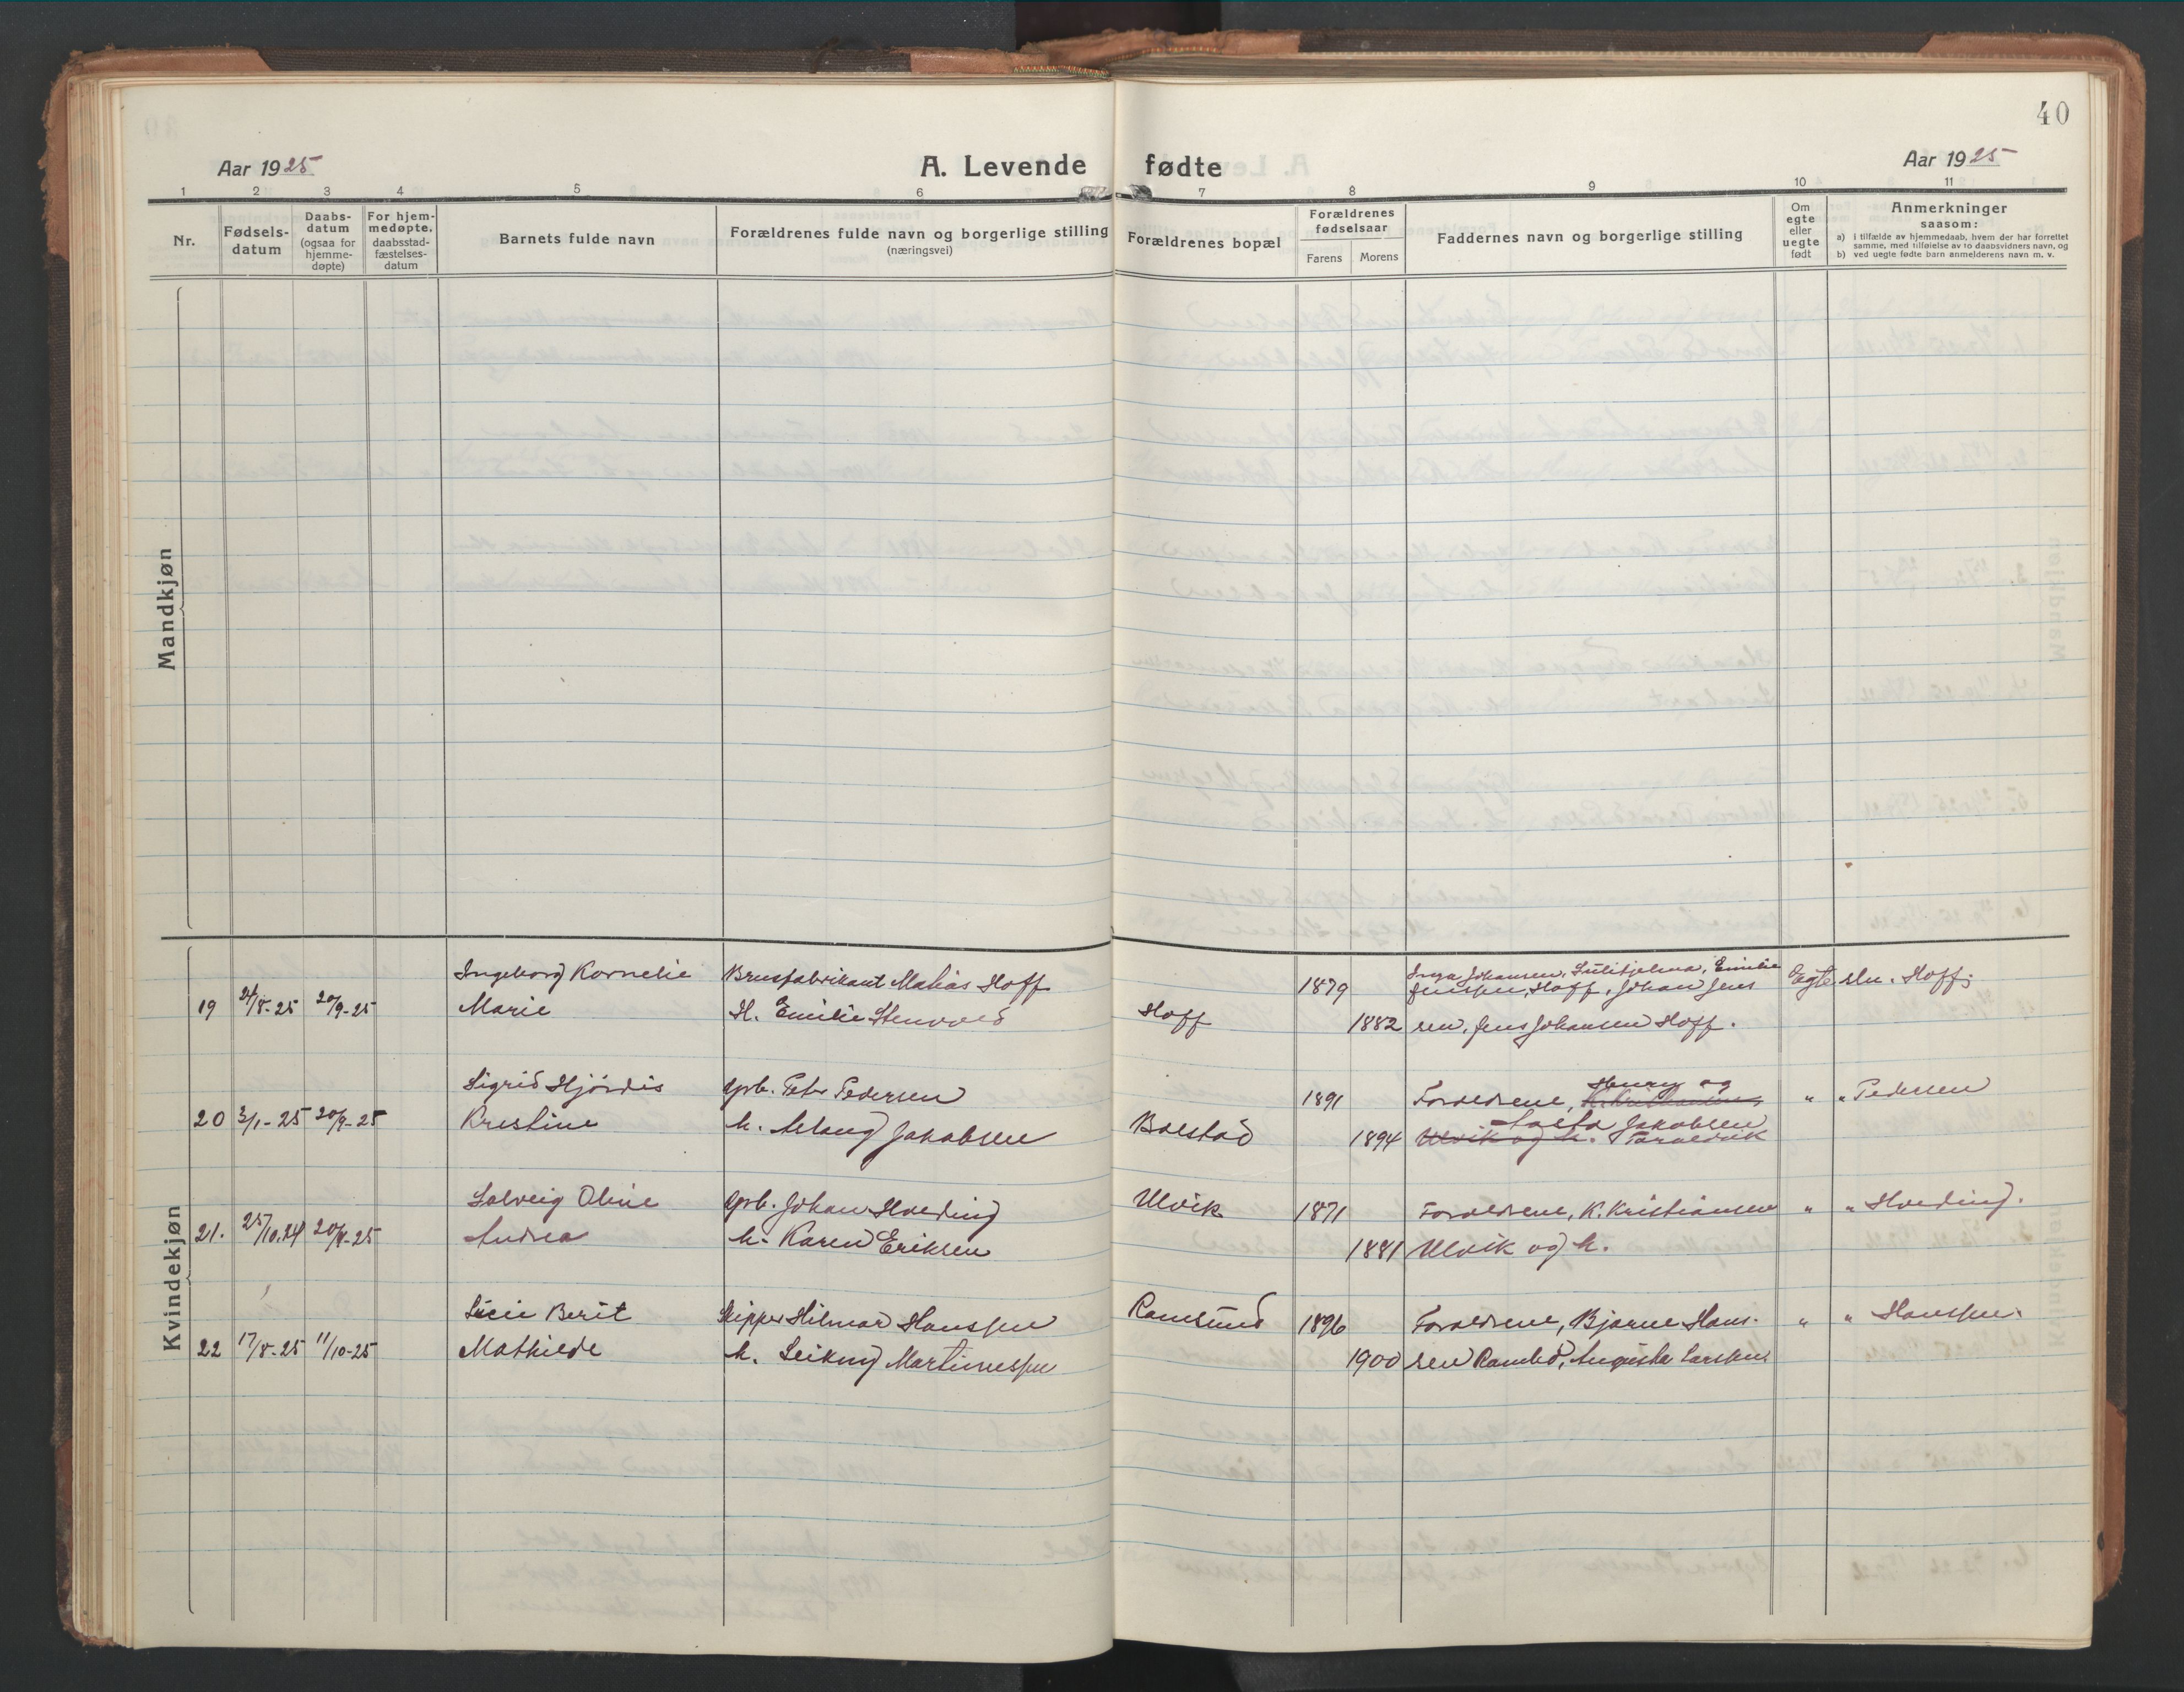 40
Aar 1925
A. Levende fødte
Aar 1925
1 2 3 4 5 6 7 8 9 10 11
Nr.
Fødselsdatum
Daabsdatum (ogsaa for hjemmedøpte)
For hjemmedøpte, daabsstadfæstelsesdatum
Barnets fulde navn
Forældrenes fulde navn og borgerlige stilling
(næringsvei)
Forældrenes bopæl
Forældrenes fødselsaar
Farens Morens
Faddernes navn og borgerlige stilling
Om egte eller uegte født
Anmerkninger
saasom:
a) i tilfælde av hjemmedaab, hvem der har forrettet samme, med tilføielse av to daabsvidners navn, og
b) ved uegte fødte barn anmelderens navn m. v.
Mandkjøn
Kvindekjøn
Ingeborg Kornelie Brusfabrikant Matias Hoff 1879 Inga Johansen, Sulitjelma, Emilie Egte Hoff
Jenssen, Hoff, Johan Jens
19 24/8-25 20/9-25 Marie H. Emilie Stenvold Hoff 1882 sen, Jens Johansen Hoff.
Sigrid Hjördis Gprb. Peter Pedersen 1891 Foreldrene, Henry og " " Pedersen
20 3/1-25 20/9-25 Kristine h. Jakobsen Bolstad 1894 Jakobsen
Ulvik og h.
Solveig Oline Gprb. Johan Hveding Ulvik 1871 Foreldrene, K. Kristiansen " " Hveding.
21. 25/10.24 20/9-25 Andrea h. Karen Eriksen 1881 Ulvik og h.
Lucie Berit Skipper Hilmar Hanssen Ramsund 1896 Foreldrene, Bjarne Hans- " " Hanssen.
22 17/8-25 11/10-25 Mathilde h. Martinussen 1900 sen Ramsund, Augusta Larssen